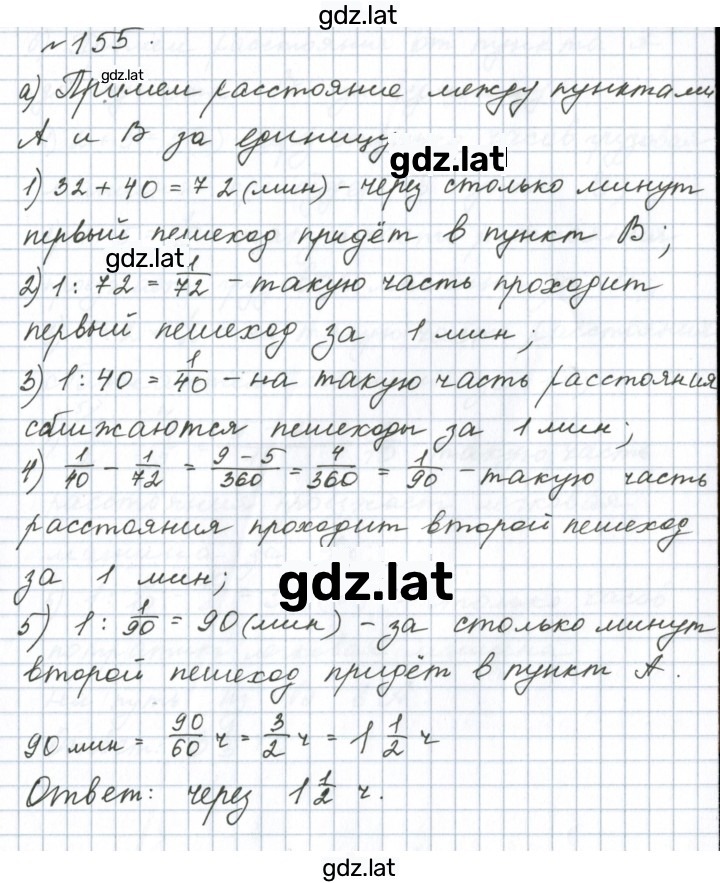 gdz.lat
№155.
gdz.lat
а) Примем расстояние между пунктами
А и В за единицу
gdz.lat
1) 32 + 40 = 72 (мин) - через столько минут
первый пешеход придёт в пункт В;
gdz.lat
2) 1 : 72 = 1/72 - такую часть проходит
первый пешеход за 1 мин;
3) 1 : 40 = 1/40 - на такую часть расстояния
сближаются пешеходы за 1 мин;
4) 1/40 - 1/72 = (9 - 5)/360 = 4/360 = 1/90 - такую часть
расстояния проходит второй пешеход
за 1 мин;
gdz.lat
5) 1 : 1/90 = 90 (мин) - за столько минут
второй пешеход придёт в пункт А.
90 мин = 90/60 ч = 3/2 ч = 1 1/2 ч
Ответ: через 1 1/2 ч.
gdz.lat